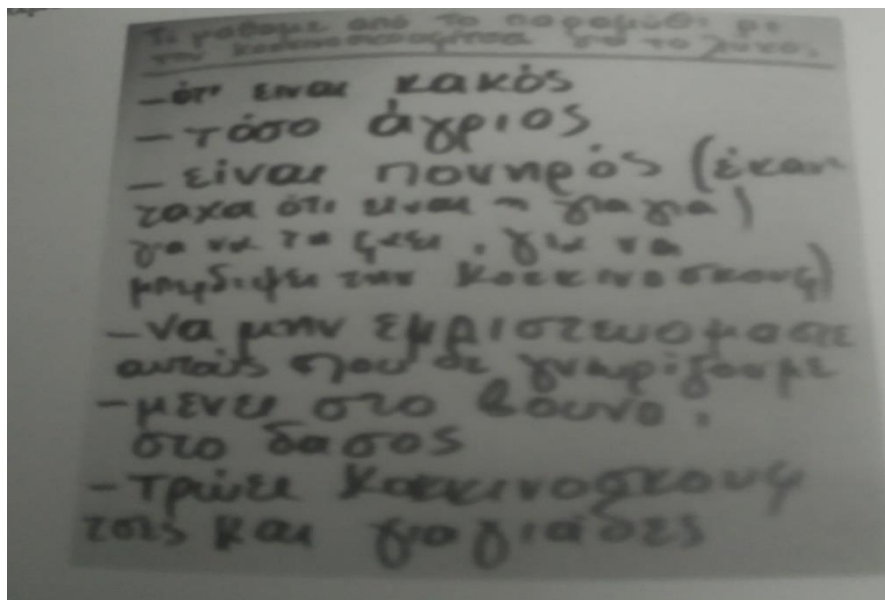 Τι μάθαμε από το παραμύθι με
την κοκκινοσκουφίτσα για το λύκο;
- ότι είναι κακός
- τόσο άγριος
- είναι πονηρός (έκαν
ταχα ότι είναι η γιαγια)
για να τα φαει, για να
μπερδέψει την Κοκκινοσκουφ)
- να μην εμπιστευόμαστε
αυτούς που δε γνωρίζουμε
- μενει στο βουνο,
στο δασος
- Τρώει Κοκκινοσκουφ
τσες και γιαγιάδες